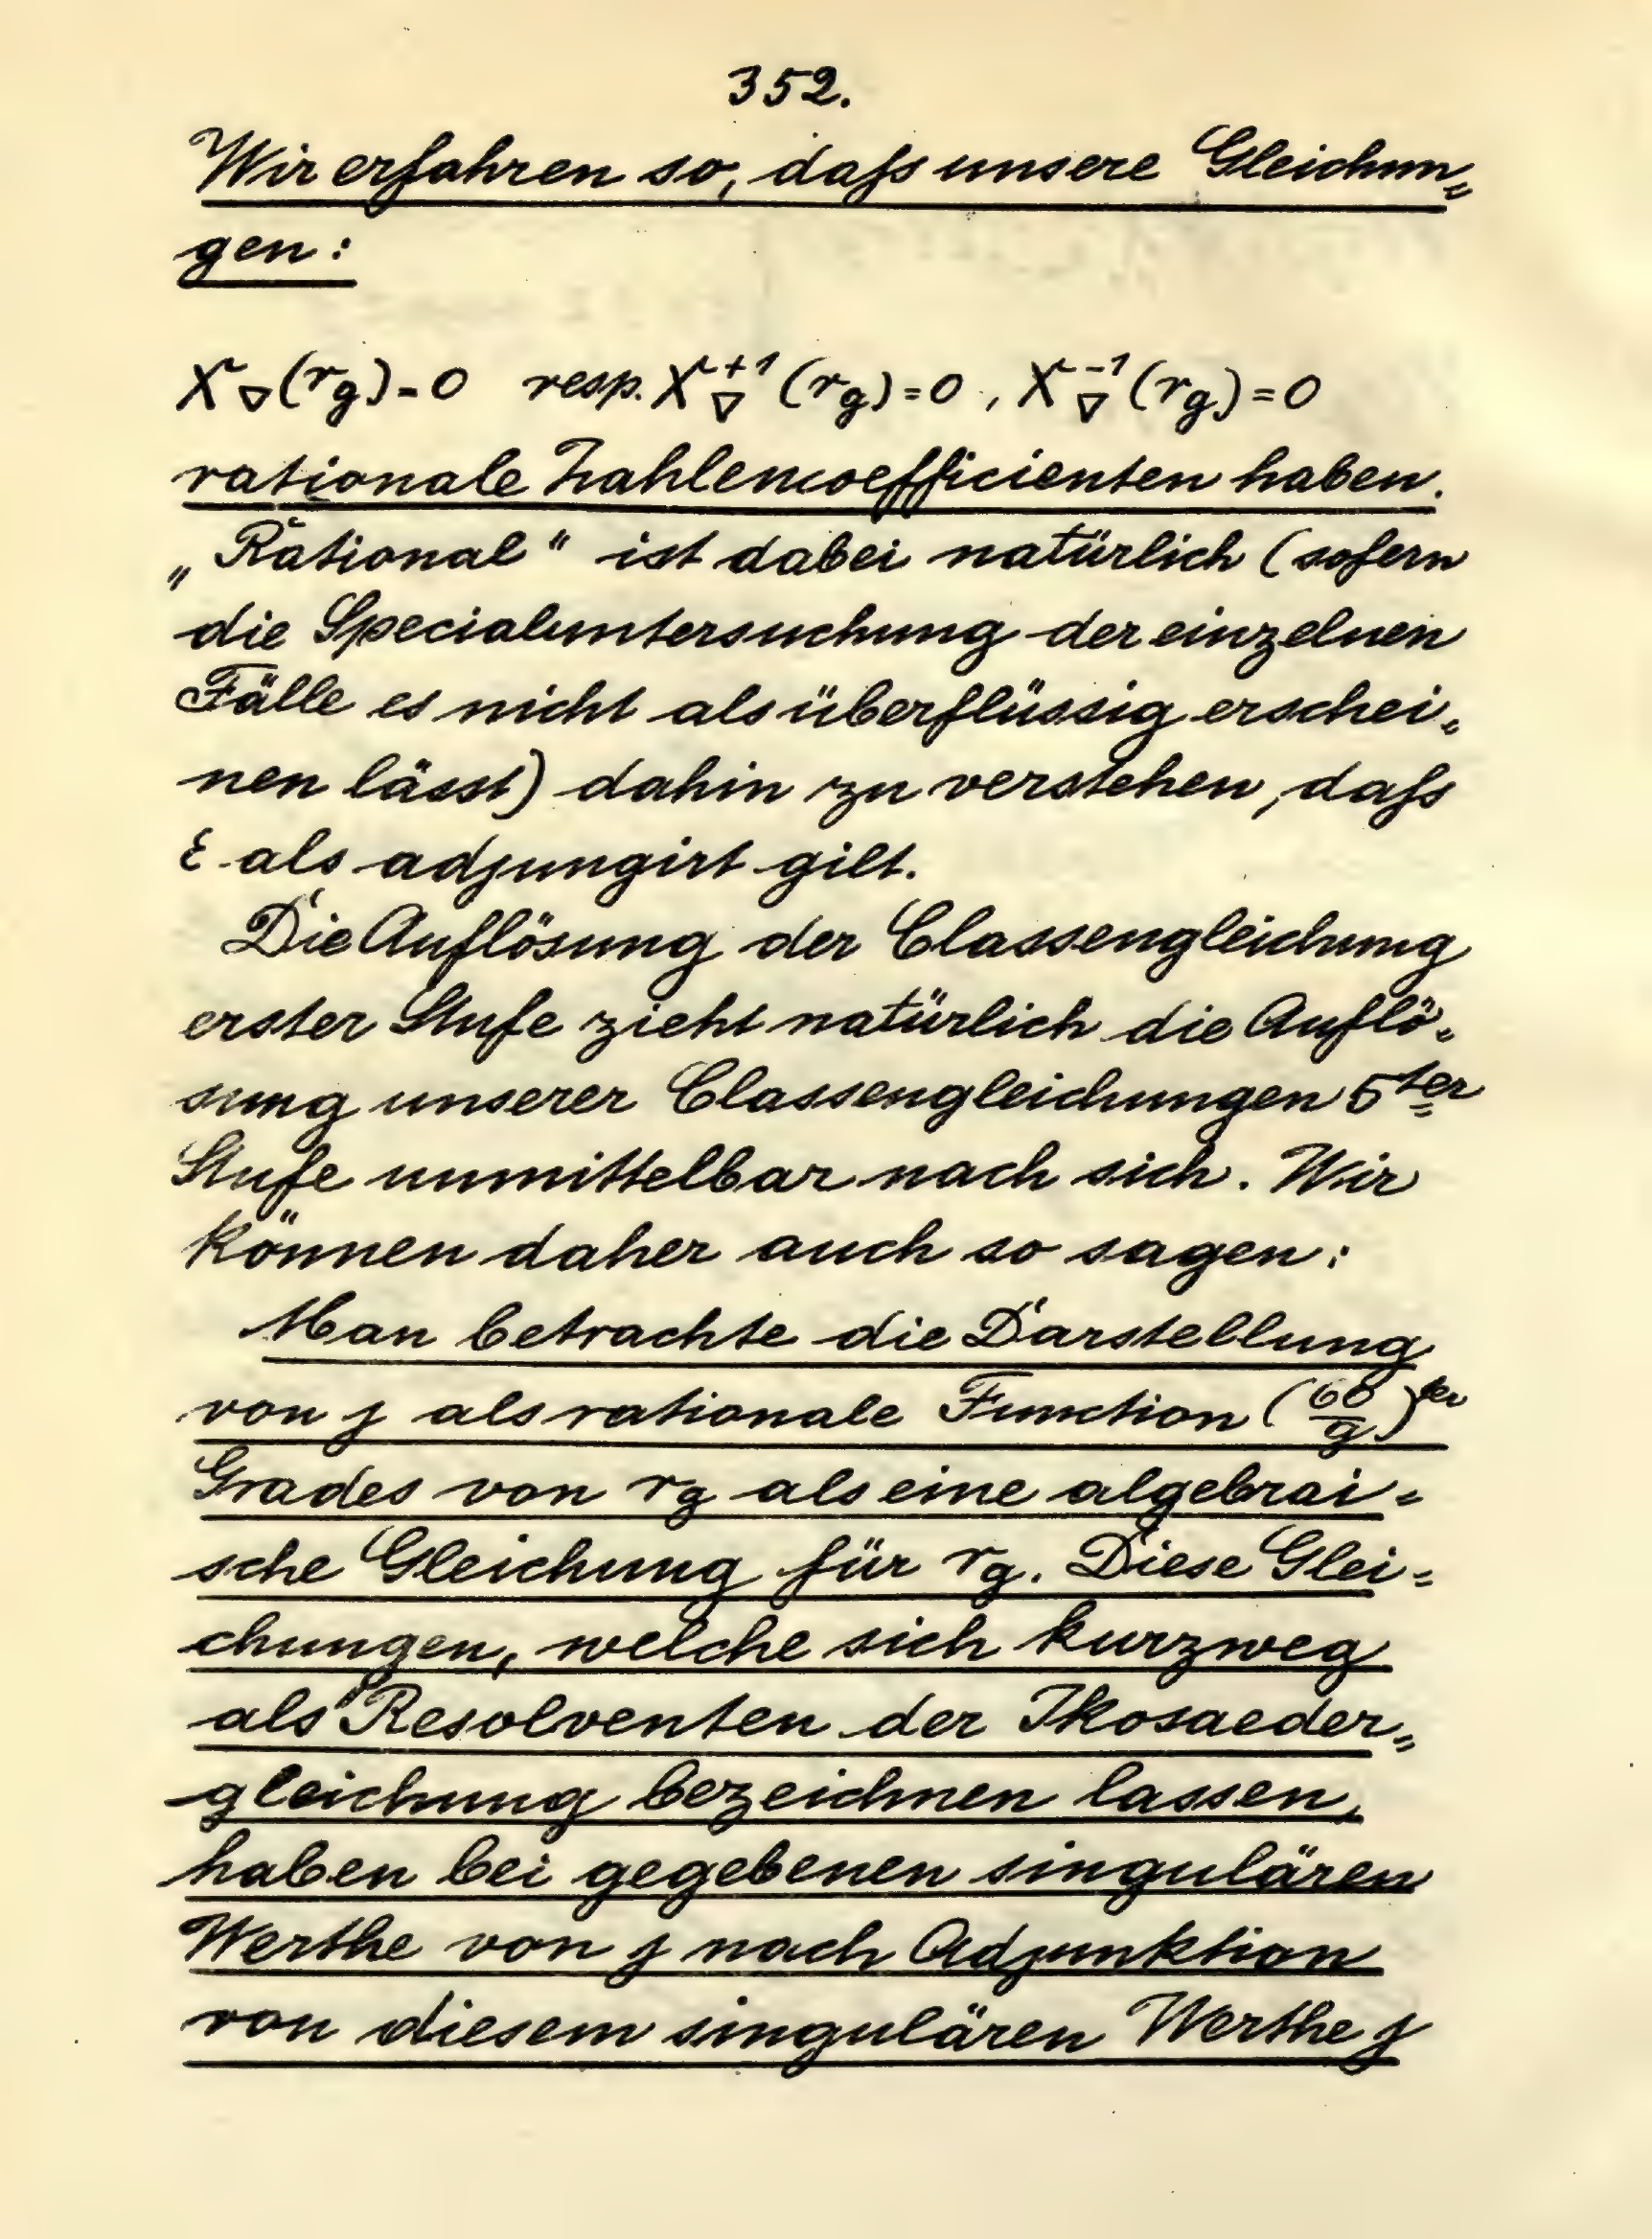 352.
Wir erfahren so, daſs unsere Gleichun„
gen:
X▽(r_g)=0 resp. X▽^{+1}(r_g)=0, X▽^{-1}(r_g)=0
rationale Zahlencoefficienten haben.
„Rational“ ist dabei natürlich (sofern
die Specialuntersuchung der einzelnen
Fälle es nicht als überflüssig erschei„
nen lässt) dahin zu verstehen, daſs
ε als adjungirt gilt.
Die Auflösung der Classengleichung
erster Stufe zieht natürlich die Auflö„
sung unserer Classengleichungen 5ter
Stufe unmittelbar nach sich. Wir
können daher auch so sagen:
Man betrachte die Darstellung
von j als rationale Function (60/g)ter
Grades von r_g als eine algebrai=
sche Gleichung für r_g. Diese Glei=
chungen, welche sich kurzweg
als Resolventen der Ikosaeder„
gleichung bezeichnen lassen,
haben bei gegebenen singulären
Werthe von j nach Adjunktion
von diesem singulären Werthe j